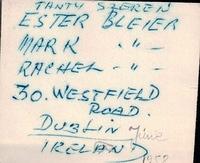 TANTY SZEREN
ESTER BLEIER
MARK -"-
RACHEL -"-
30. WESTFIELD
ROAD.
DUBLIN June
IRELAND 1950